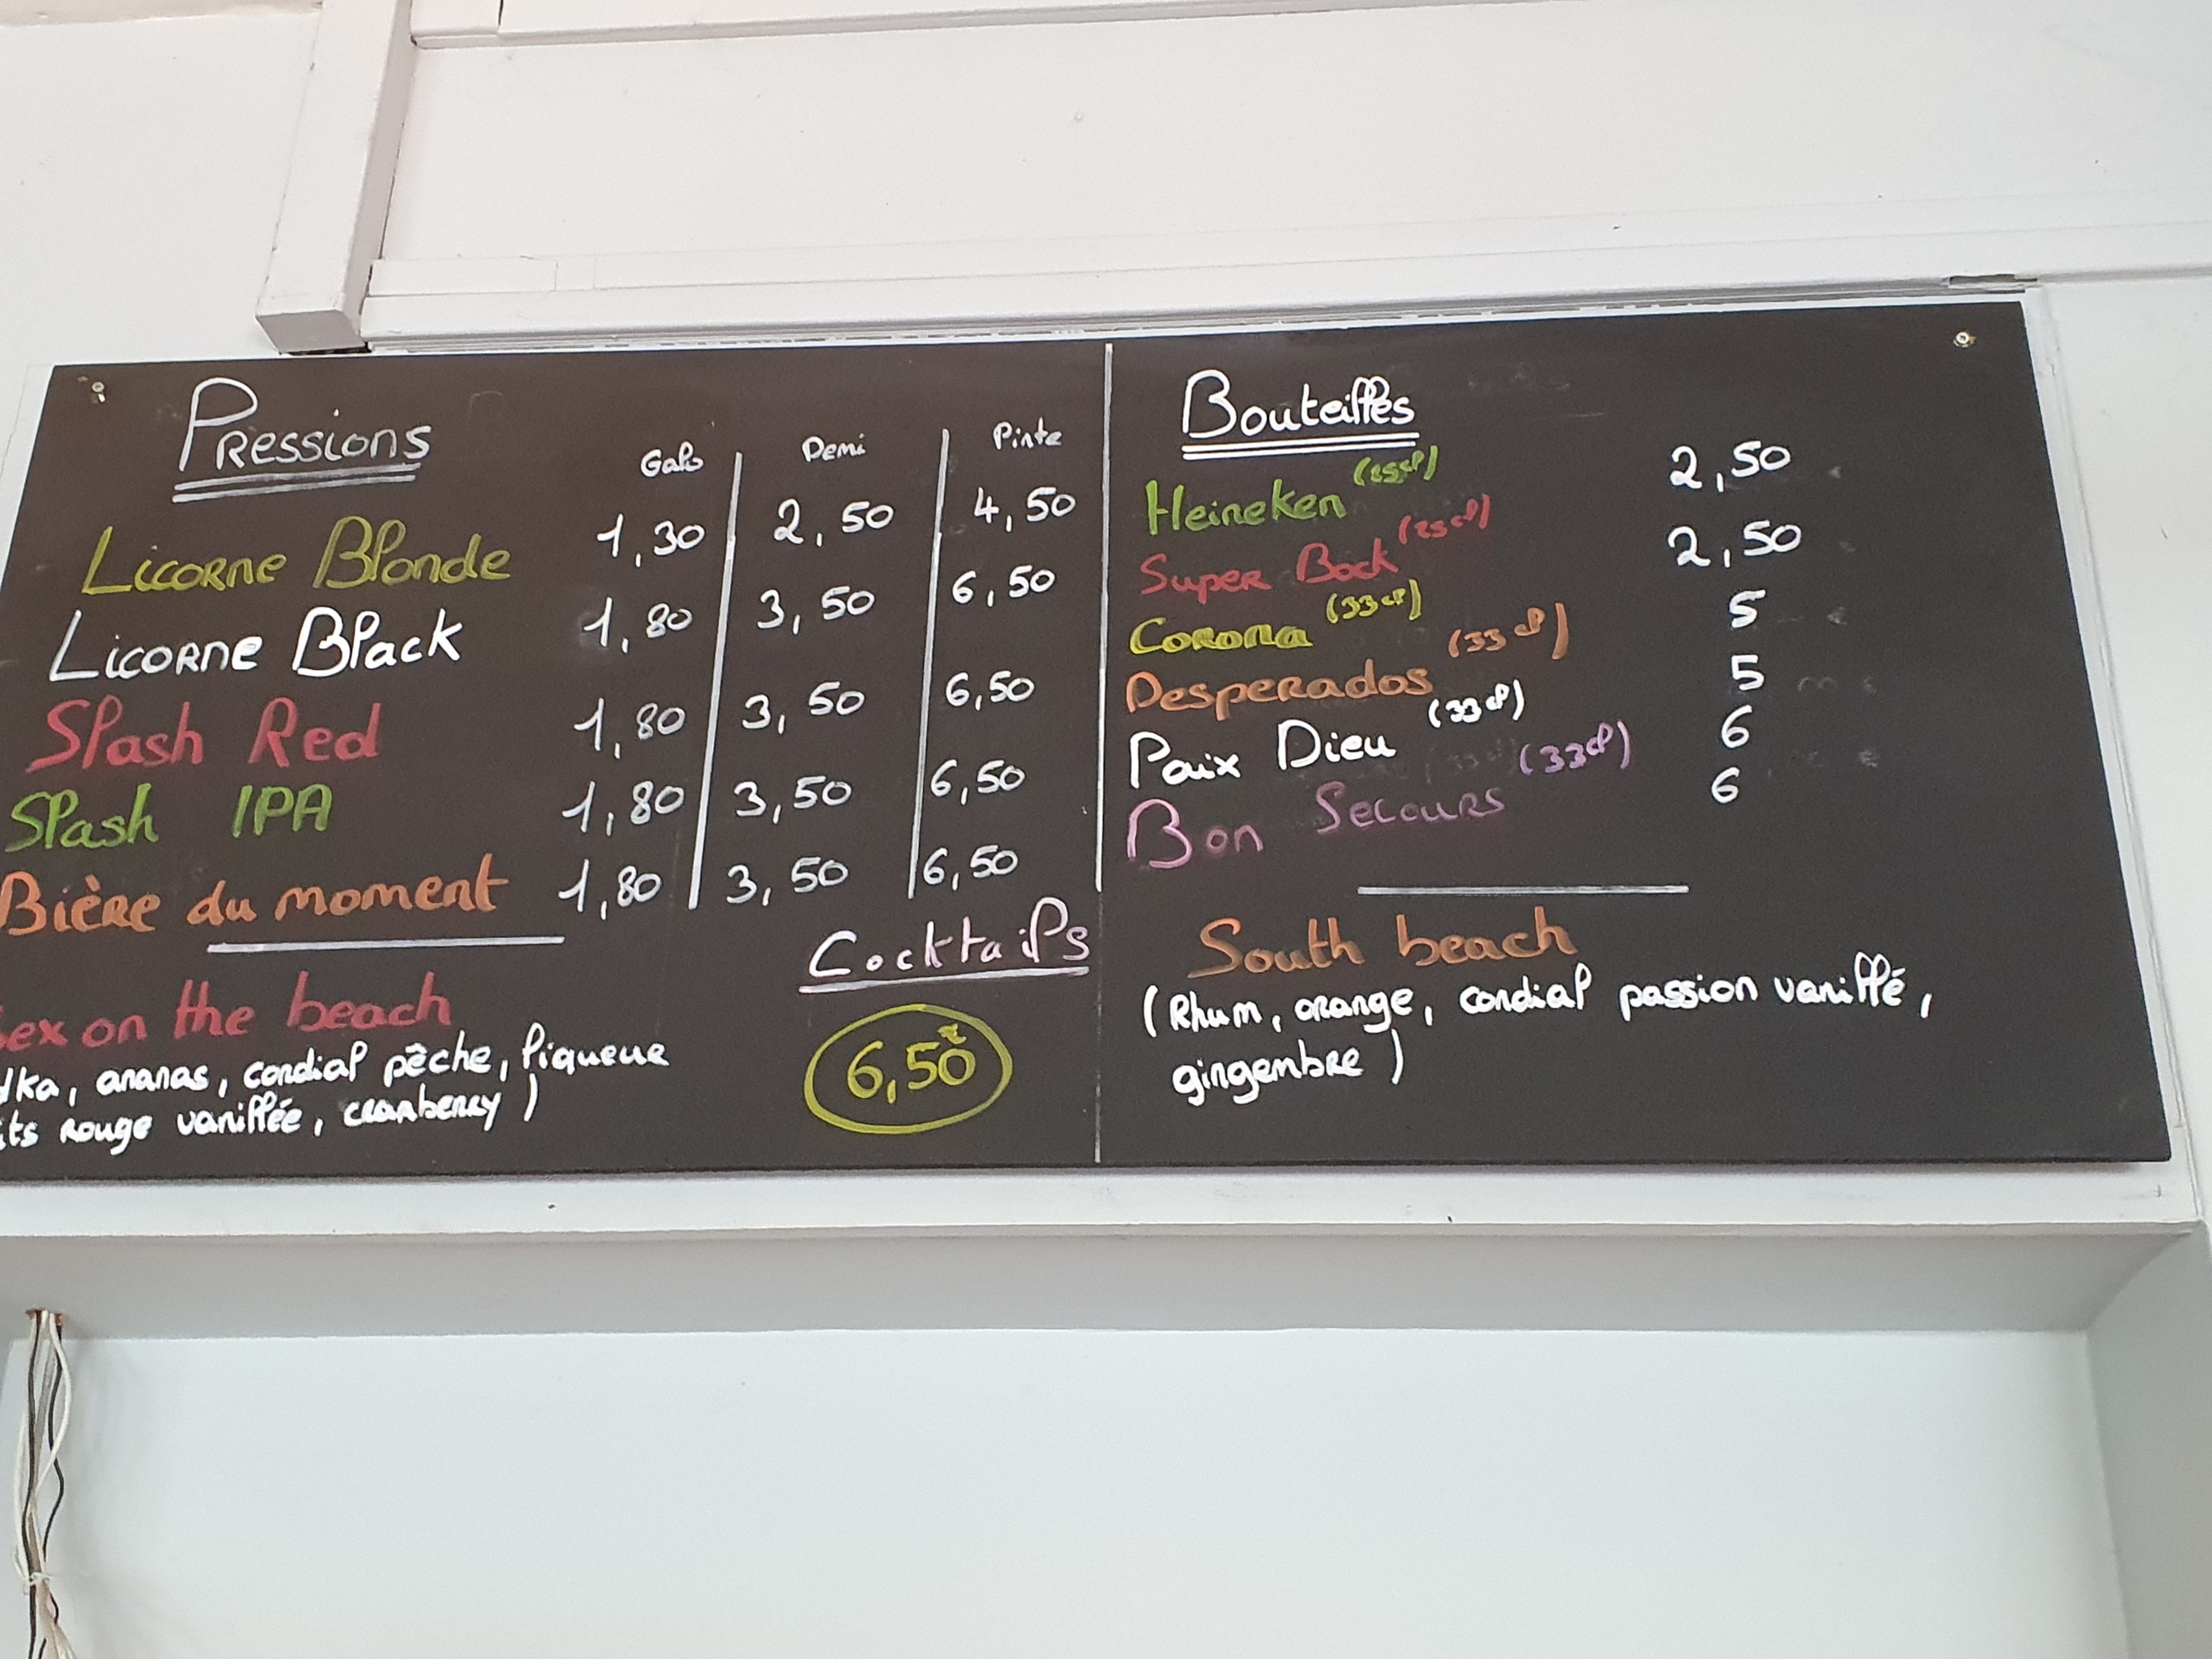 Pressions
Galo Demi Pinte
Licorne Blonde 1,30 2,50 4,50
Licorne Black 1,80 3,50 6,50
Splash Red 1,80 3,50 6,50
Splash IPA 1,80 3,50 6,50
Bière du moment 1,80 3,50 6,50
Cocktails
6,50€
ex on the beach
dka, ananas, cordial pêche, liqueur
its rouge vanillée, cranberry)
Bouteilles
Heineken (25cl) 2,50
Super Bock (25cl) 2,50
Corona (33cl) 5
Desperados (33cl) 5
Paix Dieu (33cl) 6
Bon Secours (33cl) 6
South beach
(Rhum, orange, cordial passion vanillé,
gingembre)